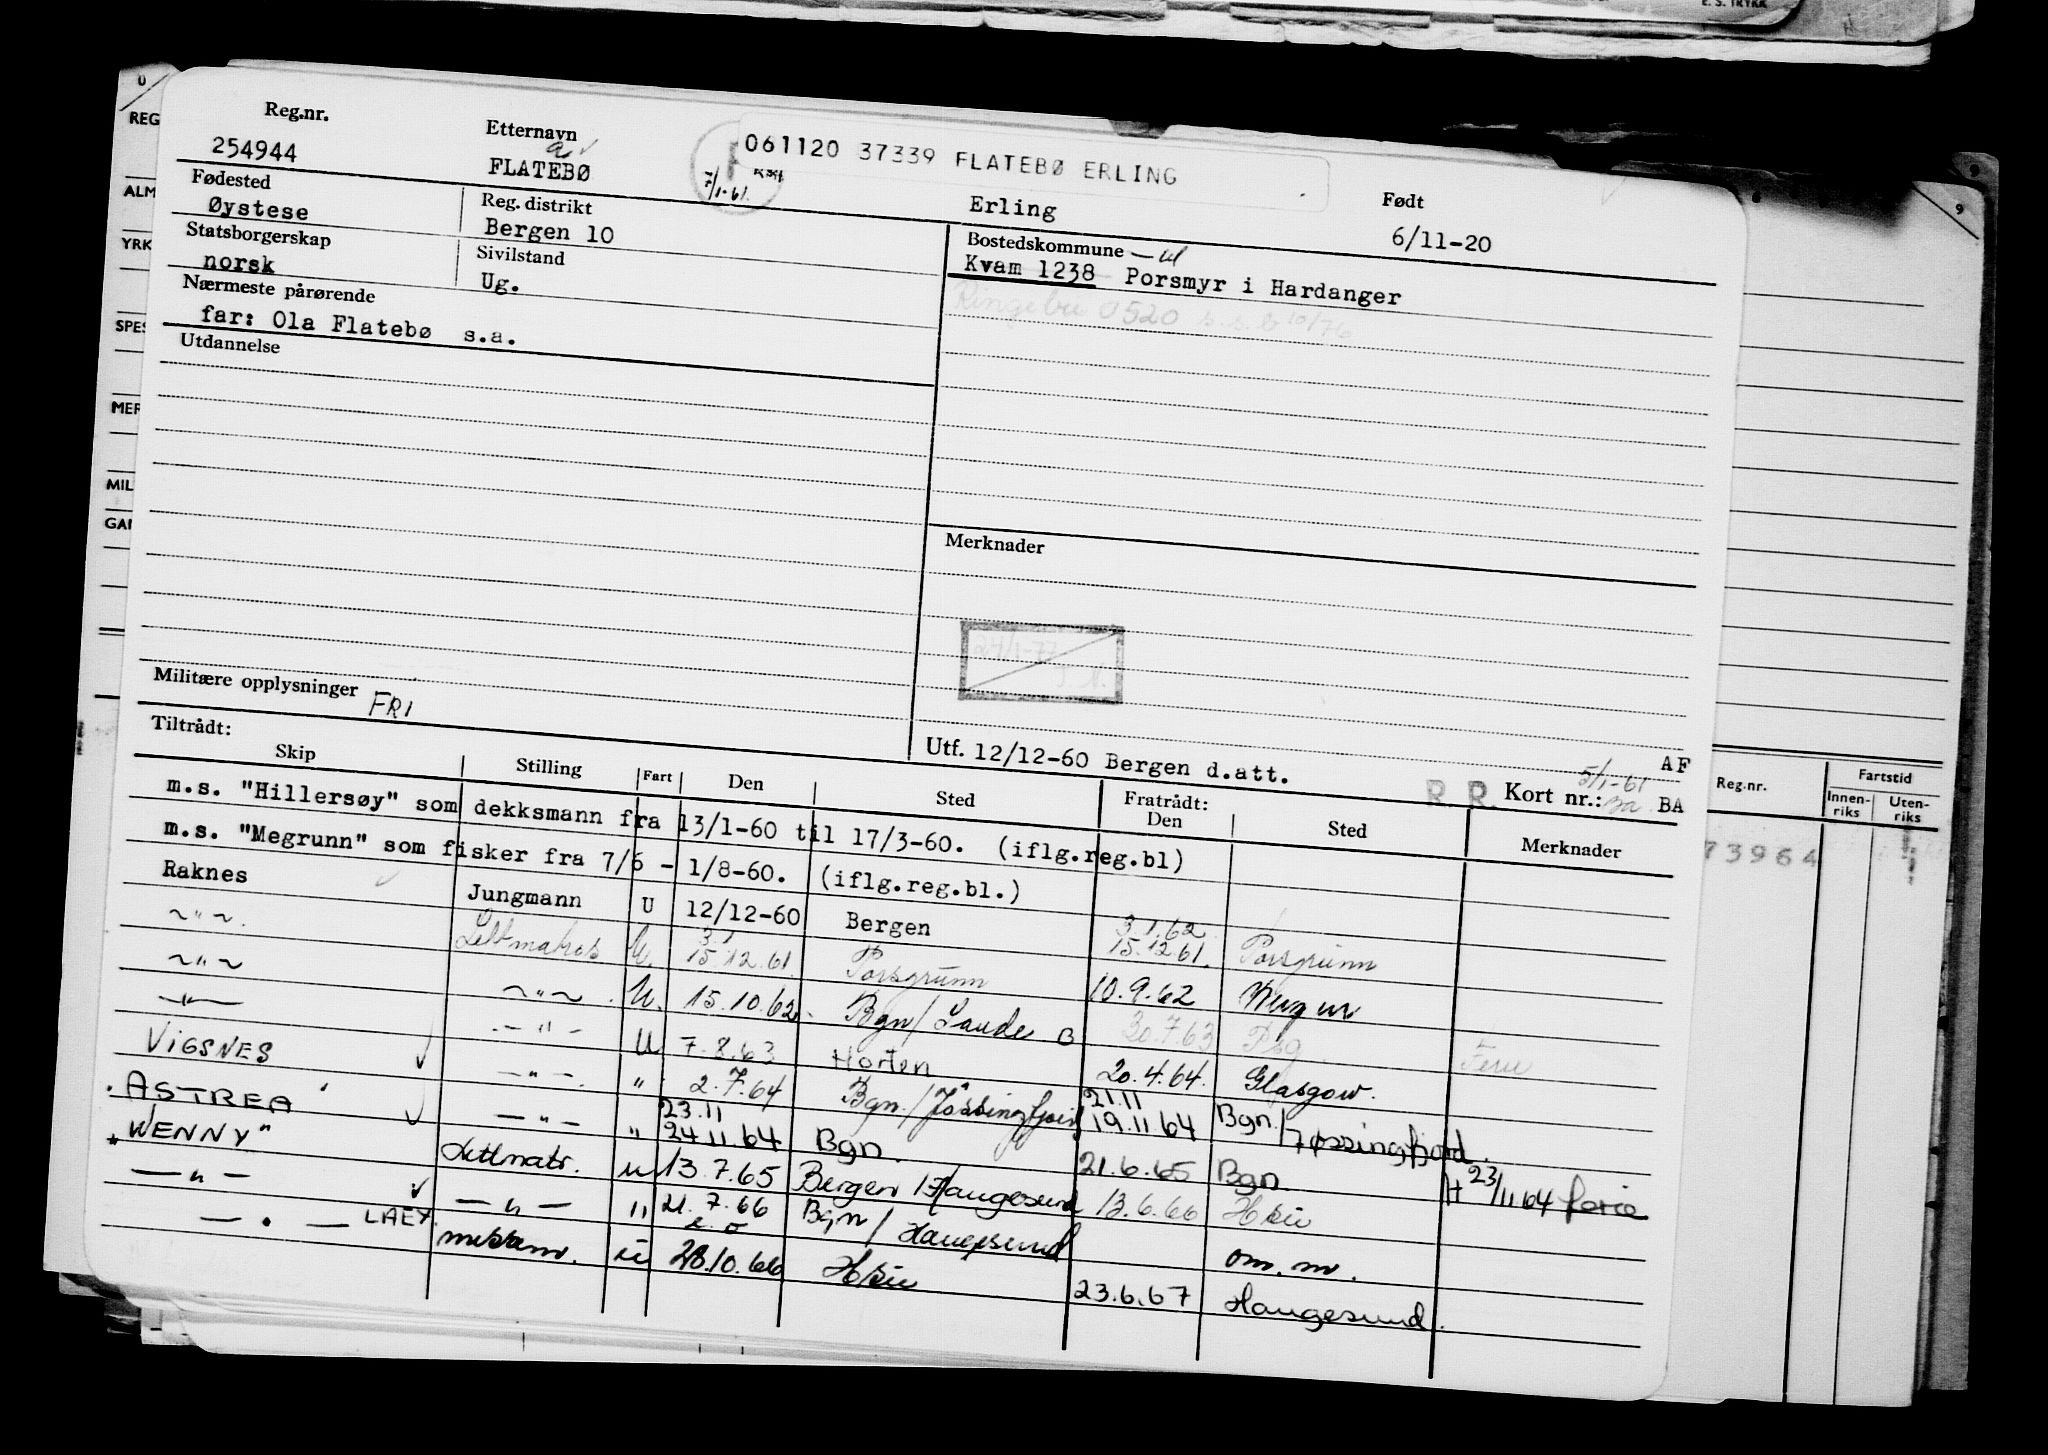 E. S. TRYKK
Reg.nr. 254944
Etternavn FLATEBØ
7/1-61
061120 37339 FLATEBØ ERLING
Erling
Født 6/11-20
Fødested Øystese
Reg. distrikt Bergen 10
Bostedskommune
Kvam 1238 Porsmyr i Hardanger
Ringebu 0520 s.s.b 10/76
Statsborgerskap norsk
Sivilstand Ug.
Nærmeste pårørende
far: Ola Flatebø s.a.
Utdannelse
Merknader
24/1-77
Militære opplysninger FRI
Utf. 12/12-60 Bergen d.att.
AF
5/1-61
R. R. Kort nr.: BA
Tiltrådt: Fratrådt:
Skip Stilling Fart Den Sted Den Sted Merknader
m.s. "Hillersøy" som dekksmann fra 13/1-60 til 17/3-60. (iflg.reg.bl)
m.s. "Megrunn" som fisker fra 7/6 - 1/8-60. (iflg.reg.bl.)
Raknes Jungmann U 12/12-60 Bergen 3.1.62 15.12.61. Porsgrunn
~"~. Lettmatros U. 3.1 15.12.61. Porsgrunn 10.9.62
~"~ ~"~. U. 15.10.62. Bgn/ Sauda B 20.7.63 Psg. Ferie
—"— .-"- U 7.8.63 Horten 20.4.64. Glasgow.
VIGSNES -"-. " 2.7.64 Bgn./Jøssingfjord 21.11 19.11.64 Bgn./Jøssingfjord.
"ASTREA" -"- " 23.11 24.11.64 Bgn. 21.6.65 Bgn H 23/11 64 ferie
"WENNY" Lettmatr. u 13.7.65 Bergen/Haugesund 13.6.66 Hsu
—"— —"— " 21.7.66 Bgn/Haugesund om.m.
—"— LAEX. u 28.10.66 Hsu 23.6.67 Haugesund.
REG
ALM
YRK
SPES
MER
MIL
GAN
9
Reg.nr.
Fartstid
Innen-riks Uten-riks
73964